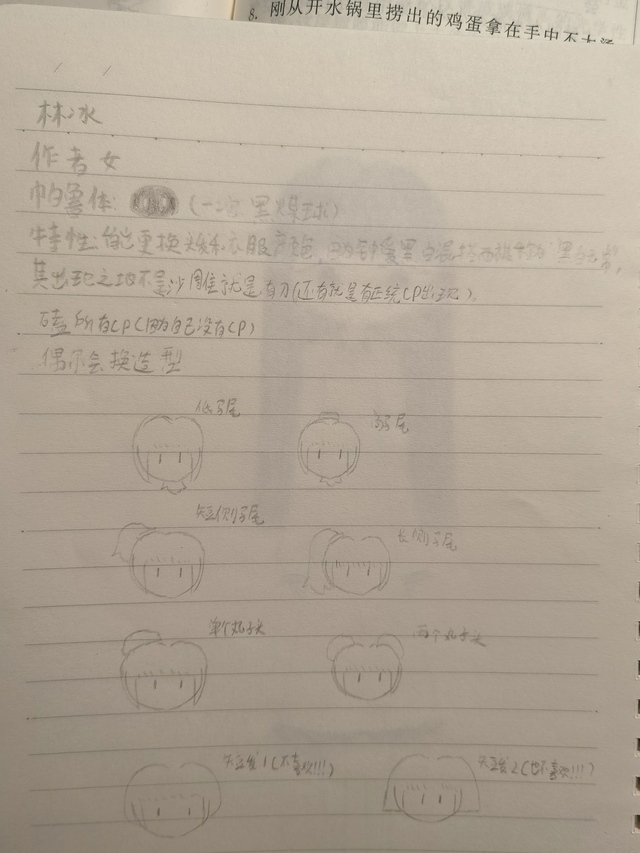 8. 刚从开水锅里捞出的鸡蛋拿在手中不太烫
林冰
作者女
帕鲁体: (一坨黑煤球)
特性:能更换头发和衣服颜色,因为钟爱黑白混搭而被称为"黑白无常",
其出现之地不是沙周焦就是有刀(还有就是有正统CP出现)
磕所有CP(因为自己没有CP)
偶尔会换造型
低马尾
高马尾
短侧马尾
长侧马尾
单个丸子头
两个丸子头
短发1(不喜欢!!!)
短发2(也不喜欢!!!)